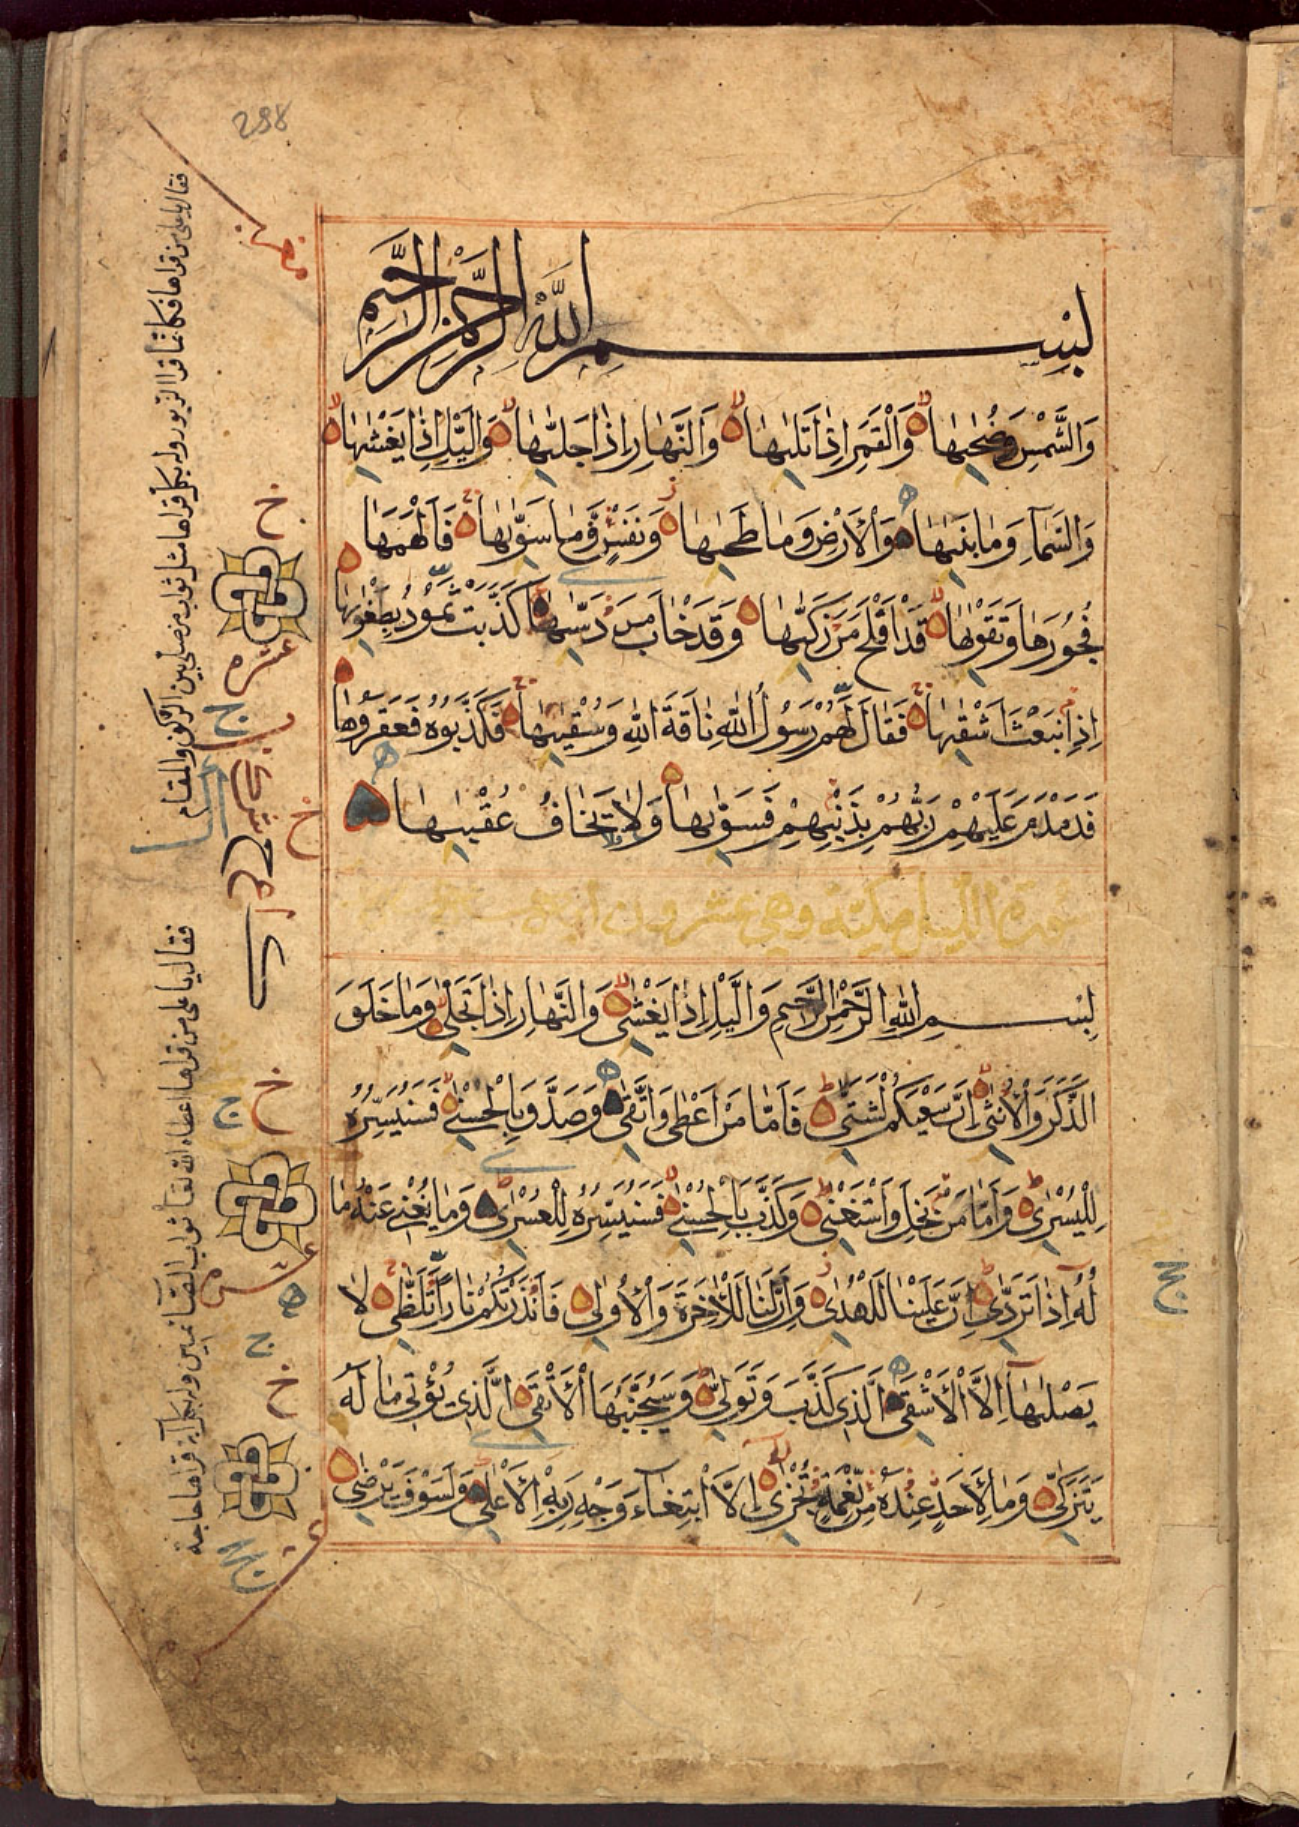 298
بِسْمِ اللَّهِ الرَّحْمَٰنِ الرَّحِيمِ
وَالشَّمْسِ وَضُحٰىهَا وَالْقَمَرِ اِذَا تَلٰىهَا وَالنَّهَارِ اِذَا جَلّٰىهَا وَالَّيْلِ اِذَا يَغْشٰىهَا
وَالسَّمَآءِ وَمَا بَنٰىهَا وَالْاَرْضِ وَمَا طَحٰىهَا وَنَفْسٍ وَّمَا سَوّٰىهَا فَاَلْهَمَهَا
فُجُوْرَهَا وَتَقْوٰىهَا قَدْ اَفْلَحَ مَنْ زَكّٰىهَا وَقَدْ خَابَ مَنْ دَسّٰىهَا كَذَّبَتْ ثَمُوْدُ بِطَغْوٰىهَا
اِذِ انْبَعَثَ اَشْقٰىهَا فَقَالَ لَهُمْ رَسُوْلُ اللّٰهِ نَاقَةَ اللّٰهِ وَسُقْيٰىهَا فَكَذَّبُوْهُ فَعَقَرُوْهَا
فَدَمْدَمَ عَلَيْهِمْ رَبُّهُمْ بِذَنْبِهِمْ فَسَوّٰىهَا وَلَا يَخَافُ عُقْبٰىهَا
سورة الليل مكية وهي عشرون اية
بِسْمِ اللّٰهِ الرَّحْمٰنِ الرَّحِيْمِ وَالَّيْلِ اِذَا يَغْشٰى وَالنَّهَارِ اِذَا تَجَلّٰى وَمَا خَلَقَ
الذَّكَرَ وَالْاُنْثٰى اِنَّ سَعْيَكُمْ لَشَتّٰى فَاَمَّا مَنْ اَعْطٰى وَاتَّقٰى وَصَدَّقَ بِالْحُسْنٰى فَسَنُيَسِّرُهُ
لِلْيُسْرٰى وَاَمَّا مَنْ بَخِلَ وَاسْتَغْنٰى وَكَذَّبَ بِالْحُسْنٰى فَسَنُيَسِّرُهُ لِلْعُسْرٰى وَمَا يُغْنِيْ عَنْهُ مَا
لُهُ اِذَا تَرَدّٰى اِنَّ عَلَيْنَا لَلْهُدٰى وَاِنَّ لَنَا لَلْاٰخِرَةَ وَالْاُوْلٰى فَاَنْذَرْتُكُمْ نَارًا تَلَظّٰى لَا
يَصْلٰىهَا اِلَّا الْاَشْقَى الَّذِيْ كَذَّبَ وَتَوَلّٰى وَسَيُجَنَّبُهَا الْاَتْقَى الَّذِيْ يُؤْتِيْ مَالَهُ
يَتَزَكّٰى وَمَا لِاَحَدٍ عِنْدَهُ مِنْ نِّعْمَةٍ تُجْزٰى اِلَّا ابْتِغَآءَ وَجْهِ رَبِّهِ الْاَعْلٰى وَلَسَوْفَ يَرْضٰى
فقال يا على من قراها فكانما قرا الزبور وله بكل اية قراها مثل ثواب من صلى بين الركن والمقام
فقال يا على من قراها اعطاه الله تعا ثواب القائمين وله بكل اية قراها حاجة
خ
عشر
ج
خ
خ
ج
عشر
ه
ج
خ